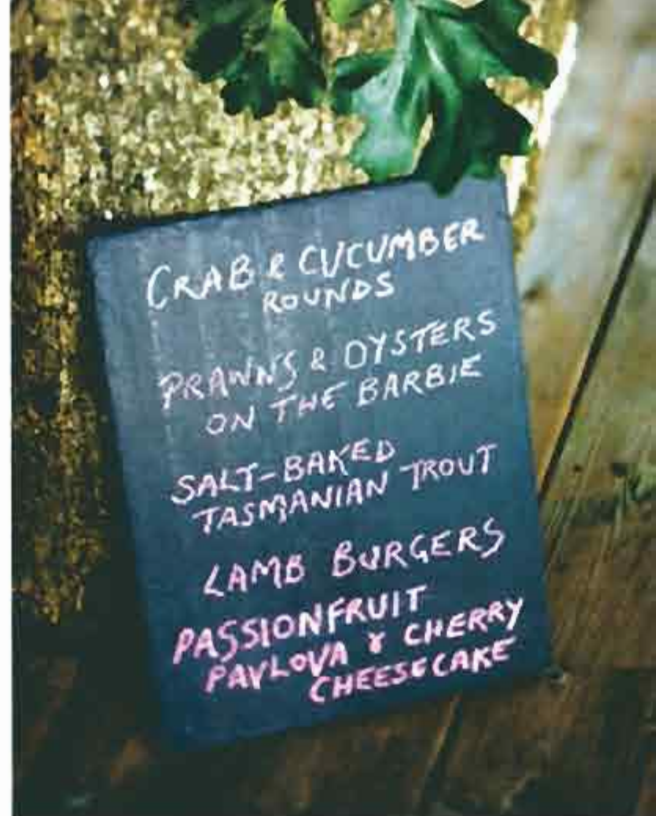 CRAB & CUCUMBER
ROUNDS
PRAWNS & OYSTERS
ON THE BARBIE
SALT-BAKED
TASMANIAN TROUT
LAMB BURGERS
PASSIONFRUIT
PAVLOVA & CHERRY
CHEESECAKE